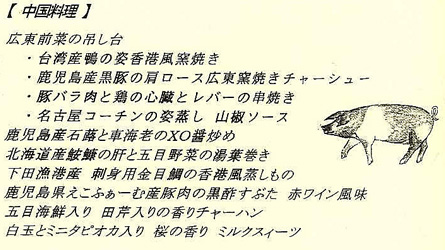 【 中国料理 】
広東前菜の吊し台
・台湾産鴨の姿香港風窯焼き
・鹿児島産黒豚の肩ロース広東窯焼きチャーシュー
・豚バラ肉と鶏の心臓とレバーの串焼き
・名古屋コーチンの姿蒸し 山椒ソース
鹿児島産石蕗と車海老のXO醤炒め
北海道産鮟鱇の肝と五目野菜の湯葉巻き
下田漁港産 刺身用金目鯛の香港風蒸しもの
鹿児島県えこふぁーむ産豚肉の黒酢すぶた 赤ワイン風味
五目海鮮入り 田芹入りの香りチャーハン
白玉とミニタピオカ入り 桜の香り ミルクスィーツ